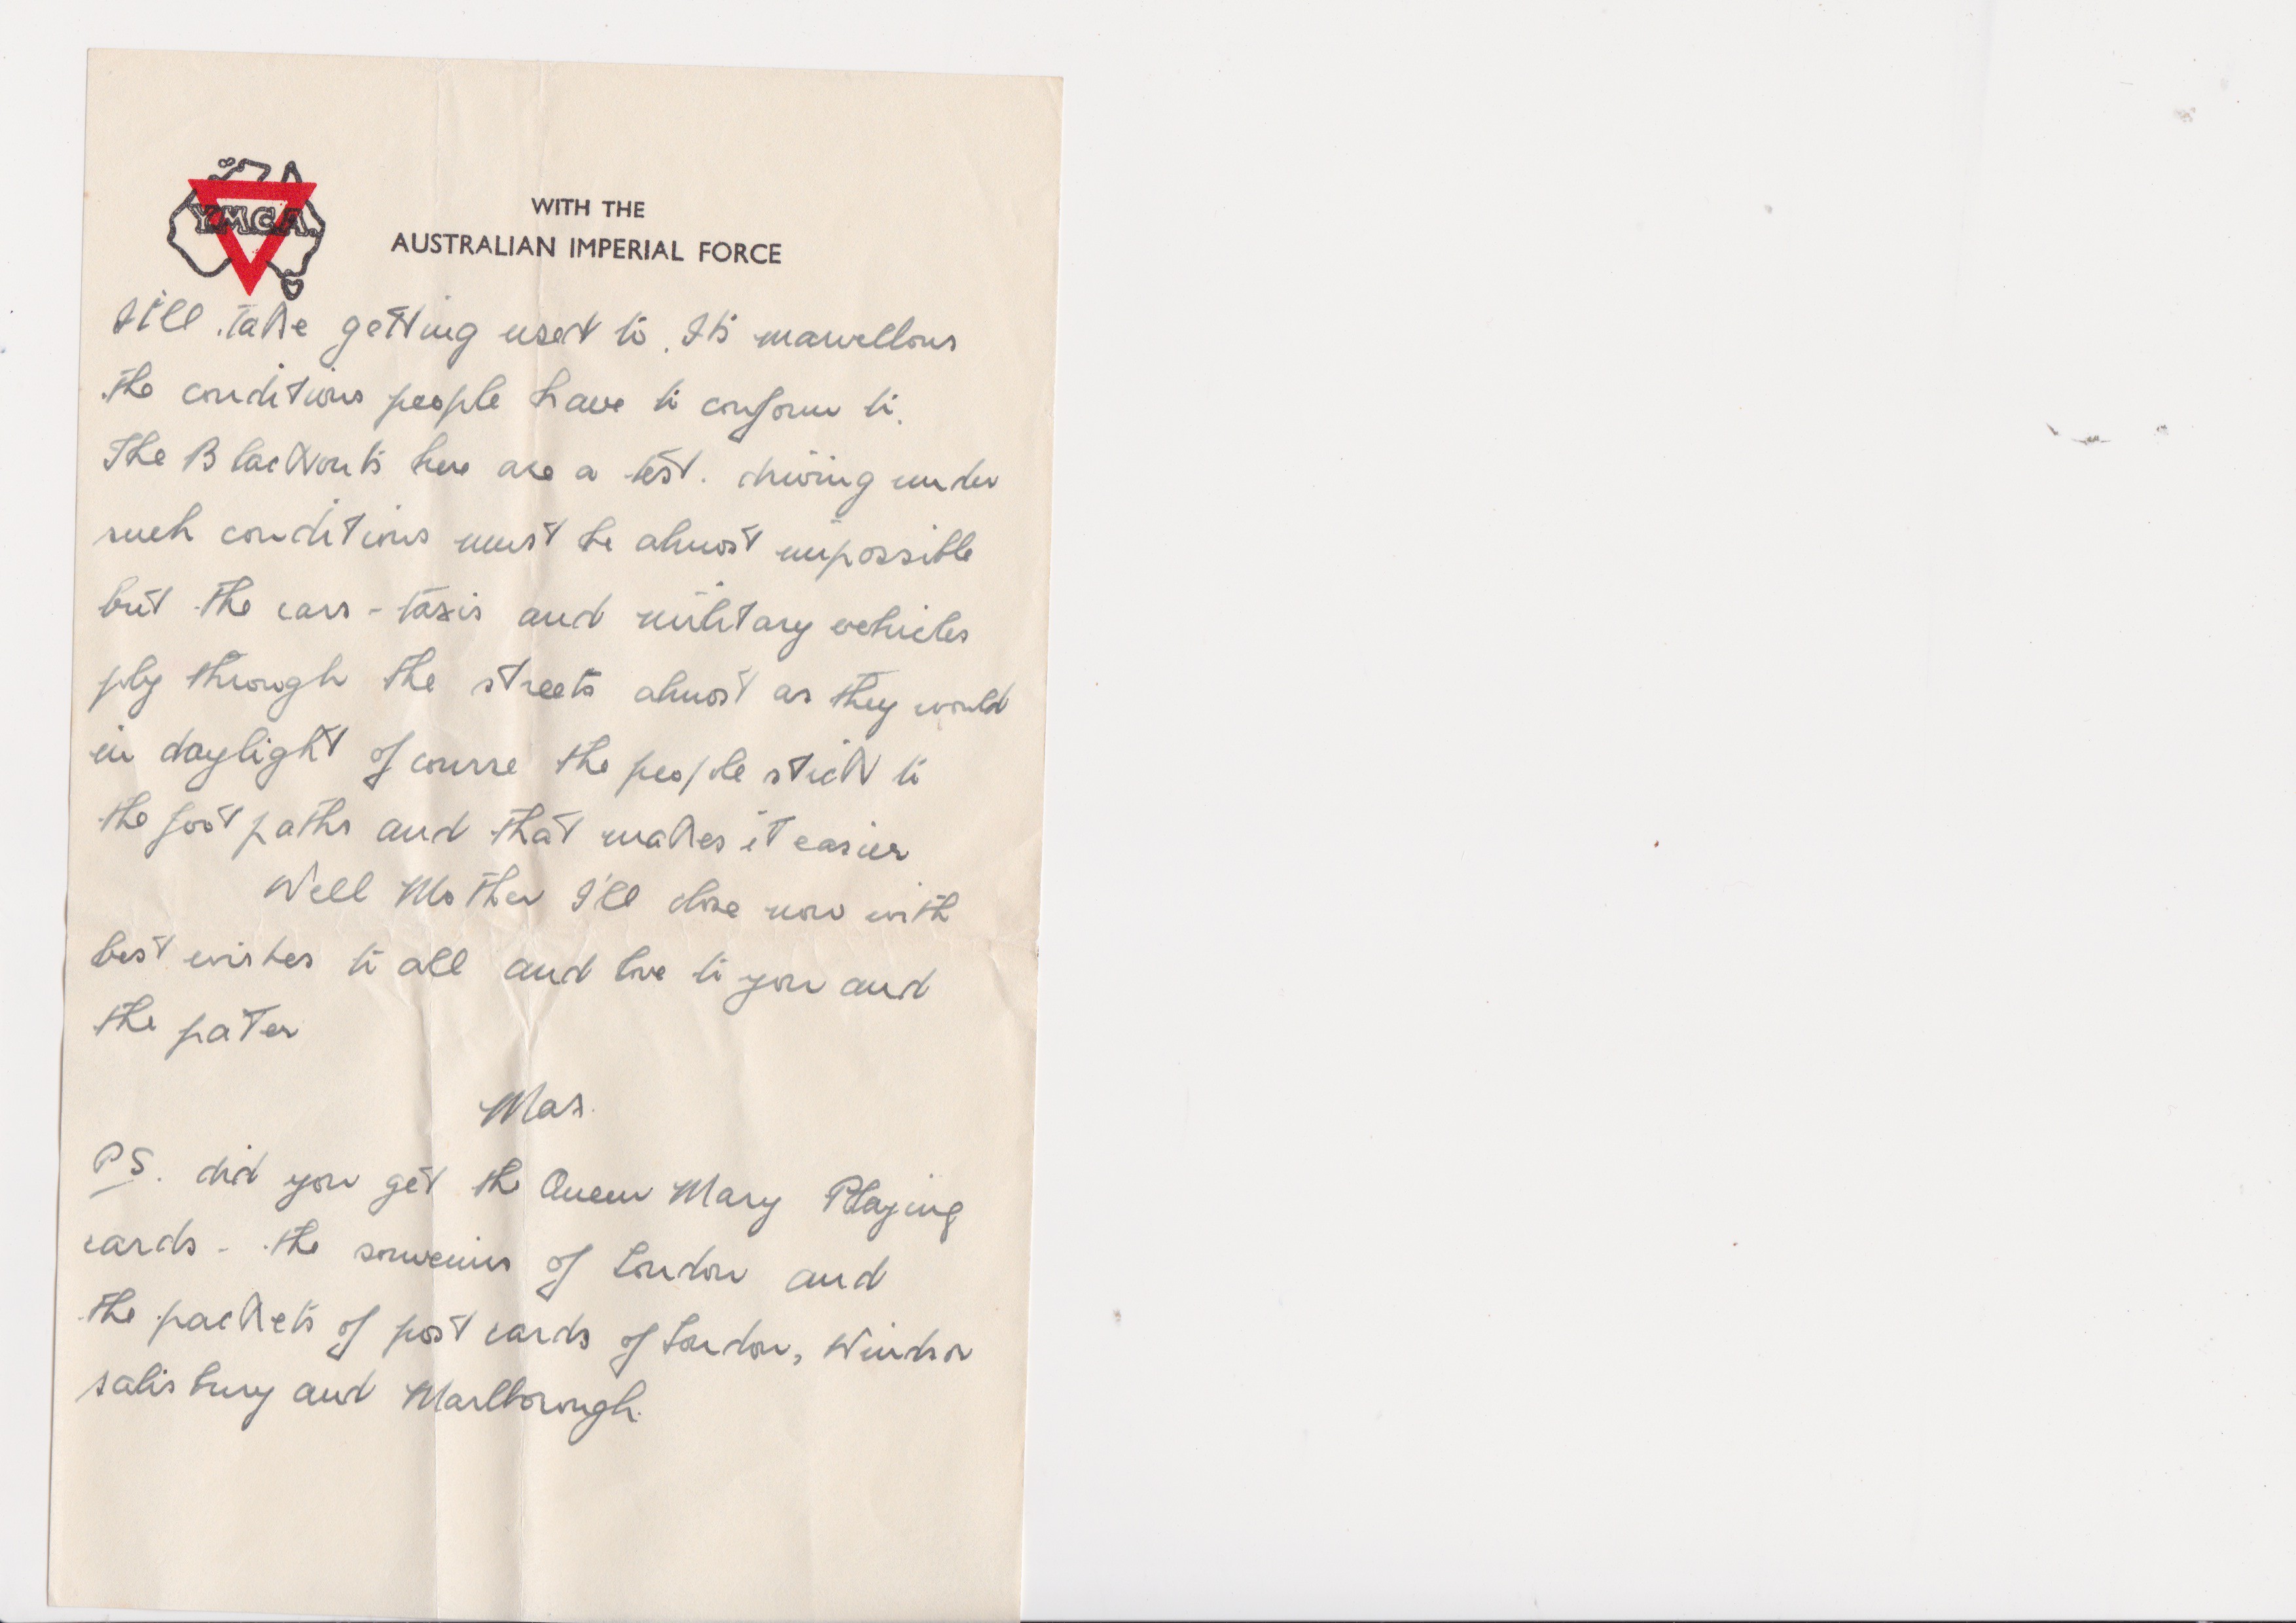 Y.M.C.A.
WITH THE
AUSTRALIAN IMPERIAL FORCE
It'll take getting used to. Its marvellous
the conditions people have to conform to.
The Blackouts here are a test. driving under
such conditions must be almost impossible
but the cars - taxis and military vehicles
ply through the streets almost as they would
in daylight of course the people stick to
the foot paths and that makes it easier
Well Mother I'll close now with
best wishes to all and love to you and
the pater
Mas.
PS. did you get the Queen Mary Playing
cards - the souvenirs of London and
the packets of post cards of London, Windsor
Salisbury and Marlborough.